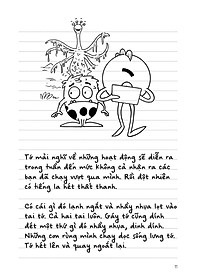 Tớ mải nghĩ về những hoạt động sẽ diễn ra
trong tuần đến mức không cả nhận ra các
bạn đã chạy vượt qua mình. Rồi đột nhiên
có tiếng la hét thất thanh.
Có cái gì đó lạnh ngắt và nhầy nhụa lọt vào
tai tớ. Cả hai tai luôn. Gáy tớ cũng dính
dết một thứ gì đó nhầy nhụa, dinh dính.
Những cơn rùng mình chạy dọc sống lưng tớ.
Tớ hét lên và quay ngoắt lại.